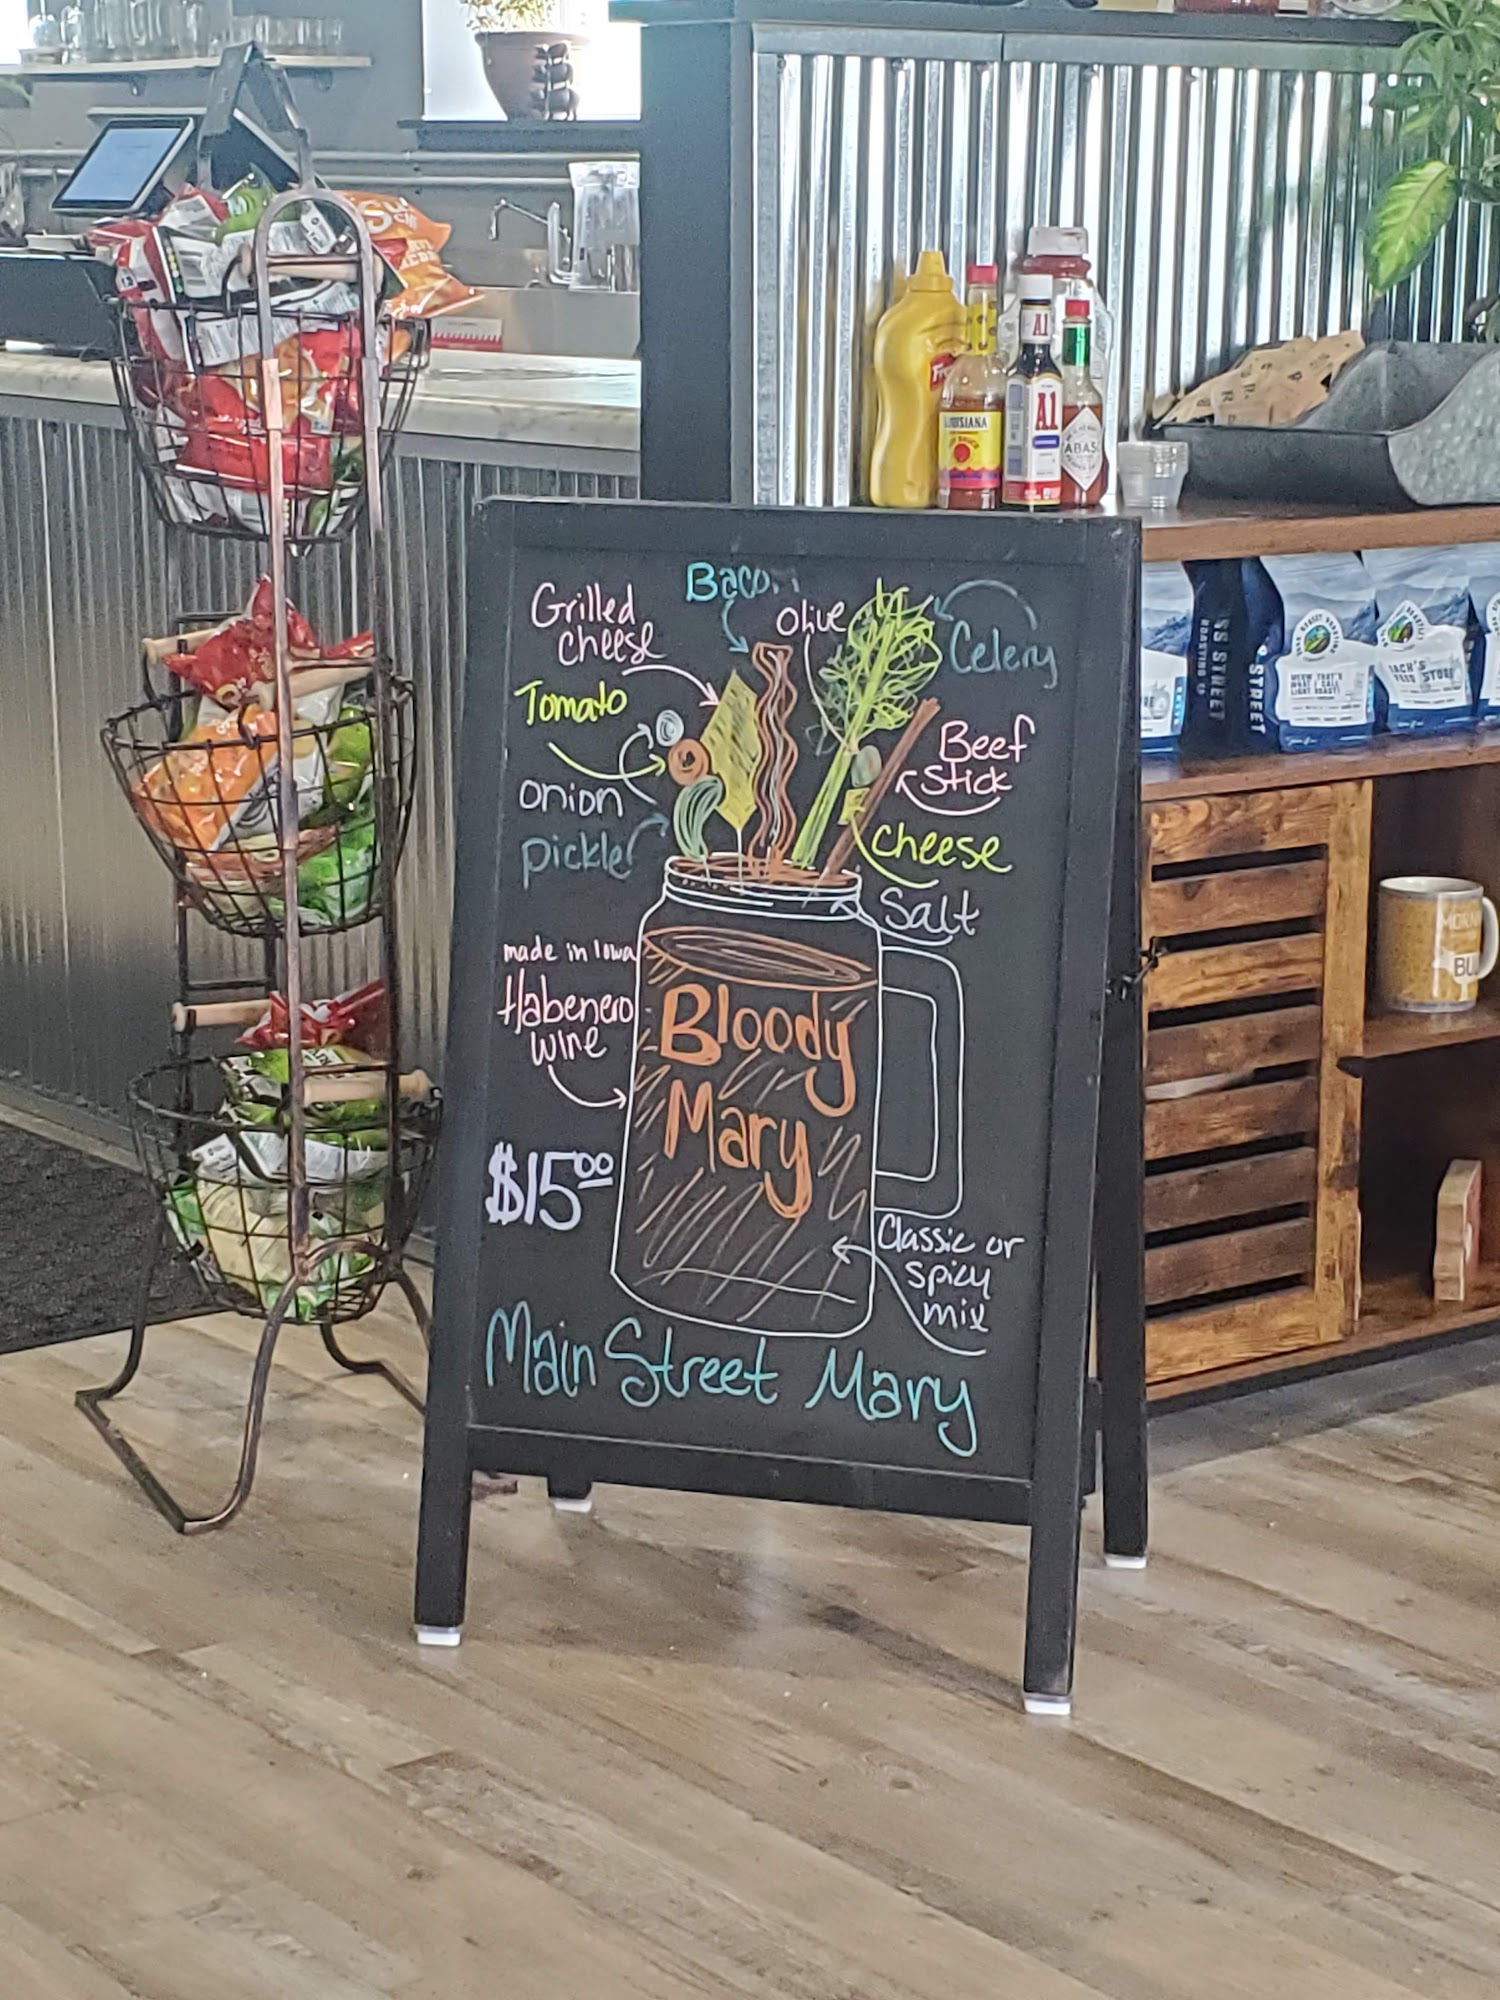 Bacon
Grilled
cheese
olive
Celery
Tomato
Beef
stick
onion
pickle
cheese
Salt
made in Iowa
Habenero
wine
Bloody
Mary
$15.00
Classic or
spicy
mix
Main Street Mary
LOUISIANA
A1
A1
SS STREET
ROASTING CO
STREET
MEOW THAT'S
WHAT I CALL
LIGHT ROAST!